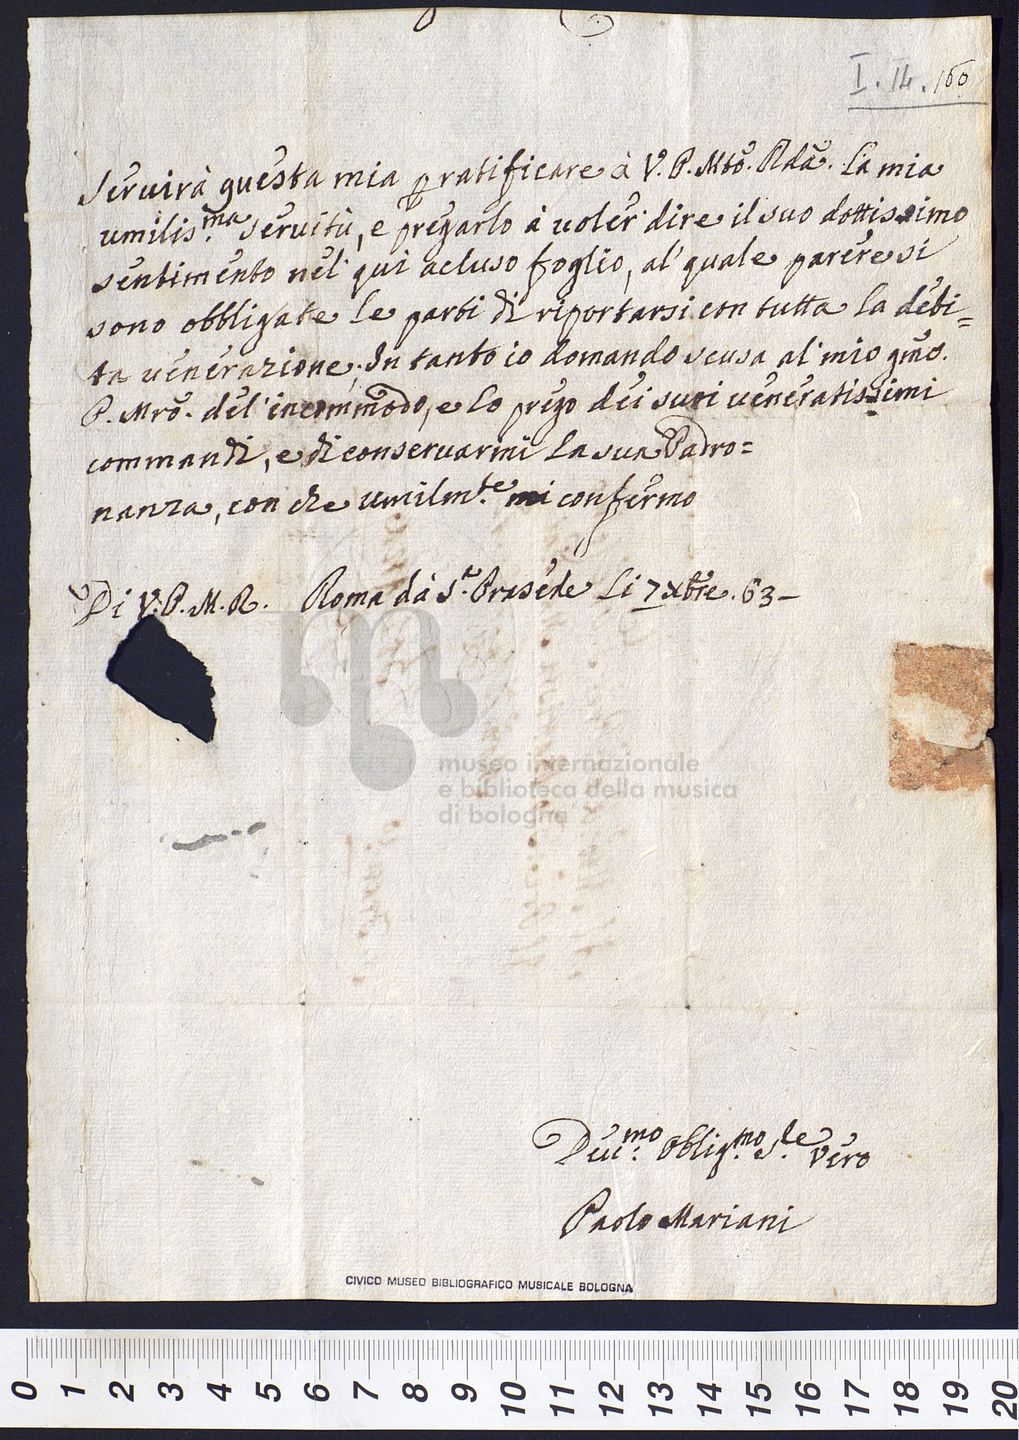 I. 14. 160
Servirà questa mia p ratificare à V. P. Mto. Rda. la mia
umilis.ma servitù, e pregarlo à voler dire il suo dottissimo
sentimento nel' quì acluso foglio, al' quale parere si
sono obbligate le parti di riportarsi con tutta la debi=
ta venerazione. In tanto io domando scusa al' mio
P. Mro. del' incommodo, e lo prego dei suoi veneratissimi
commandi, e di conservarmi la sua Padro=
nanza, con che umilm.te mi confermo
Di V. P. M. R. Roma dà S. Prasede li 7 xbre. 63 –
museo internazionale
e biblioteca della musica
di bologna
Dev.mo Oblig.mo S.re vero
Paolo Mariani
CIVICO MUSEO BIBLIOGRAFICO MUSICALE BOLOGNA
0 1 2 3 4 5 6 7 8 9 10 11 12 13 14 15 16 17 18 19 20